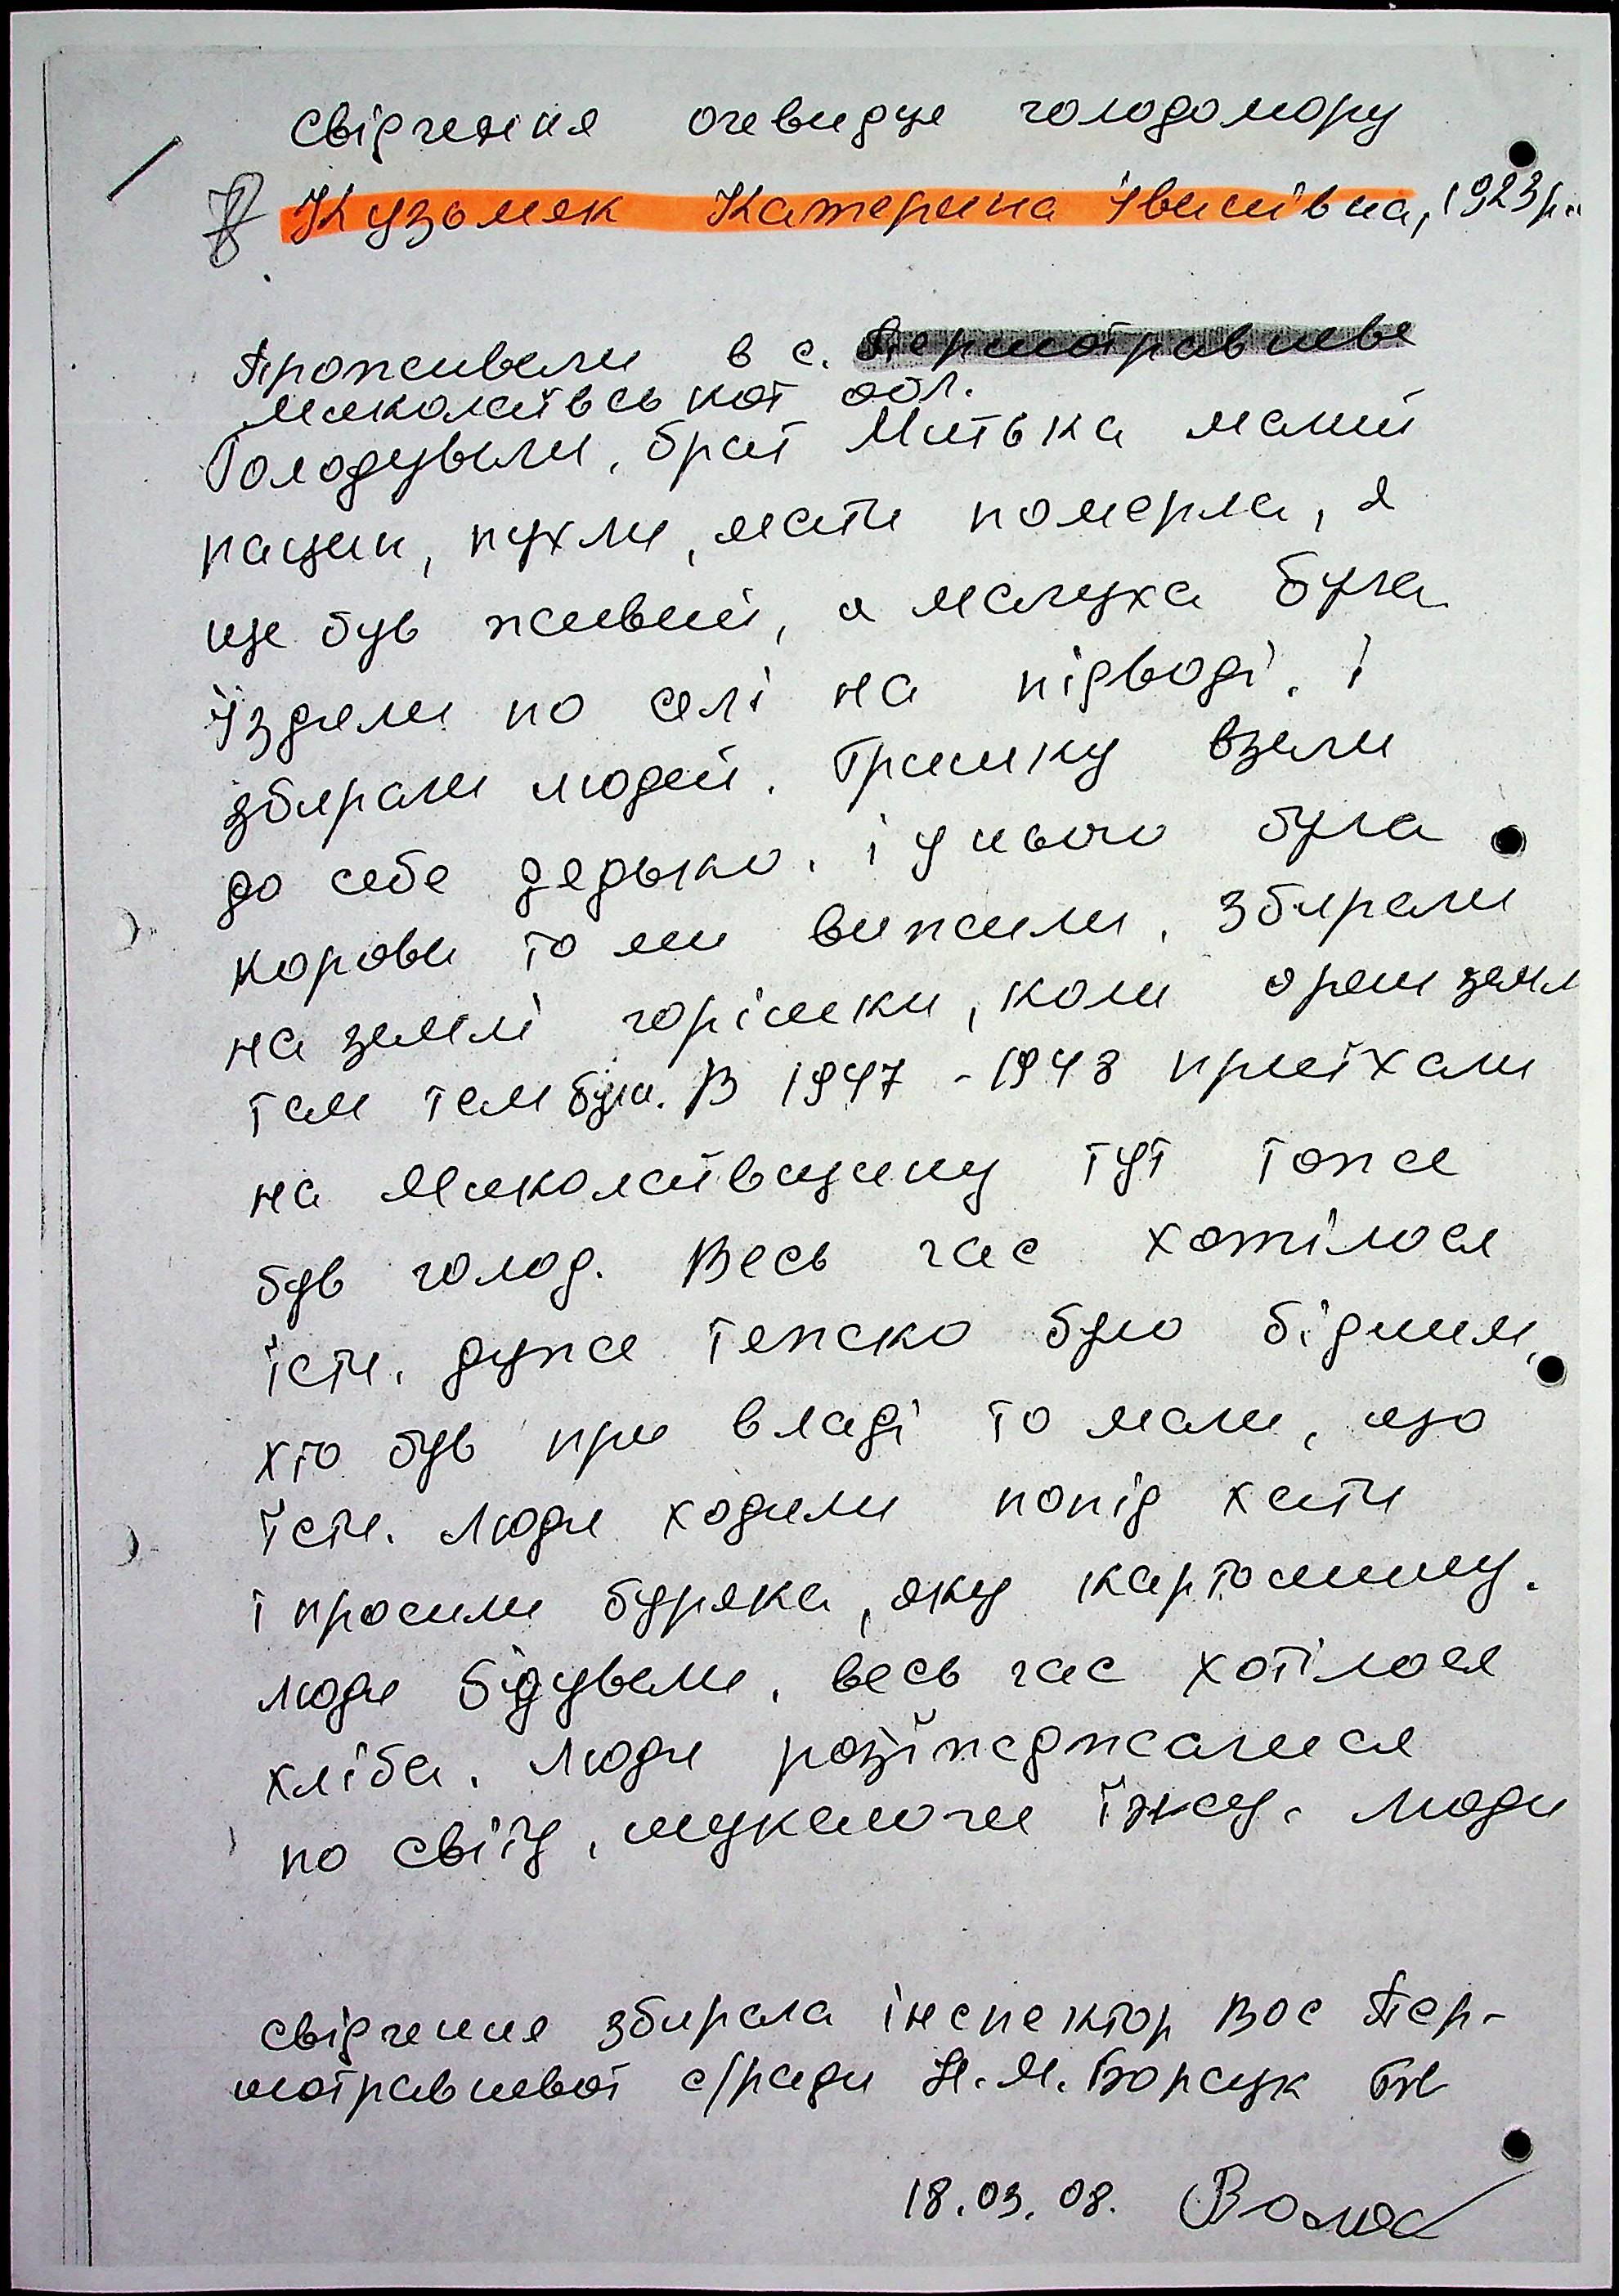 Свідчення очевидця голодомору
Кузьмяк Катерина Івинівна, 1923р.
Проживали в с. Першотравневе
Миколаївської обл.
Голодували, брат Митька малий
пацин, пухли, мати померла, я
ще був живий, а малуха була
їздили по селі на підводі. і
збирали людей. Гришку взяли
до себе дядько. і у нього була
корови то ми вижили. Збирали
на землі горішки, коли орали земл
там там були. В 1947 - 1948 приїхали
на Миколаївщину тут тоже
був голод. Весь час хотілося
їсти. дуже тяжко було бідним,
хто був при владі то мали, що
їсти. Люди ходили попід хати
і просили буряка, яку картошину.
люди бідували, весь час хотілося
хліба. Люди розїжджалися
по світу, шукаючи їжу. Люди
свідчення збирала інспектор ВОС Пер-
шотравневої с/ради Н.М. Борсук
18.03.08.